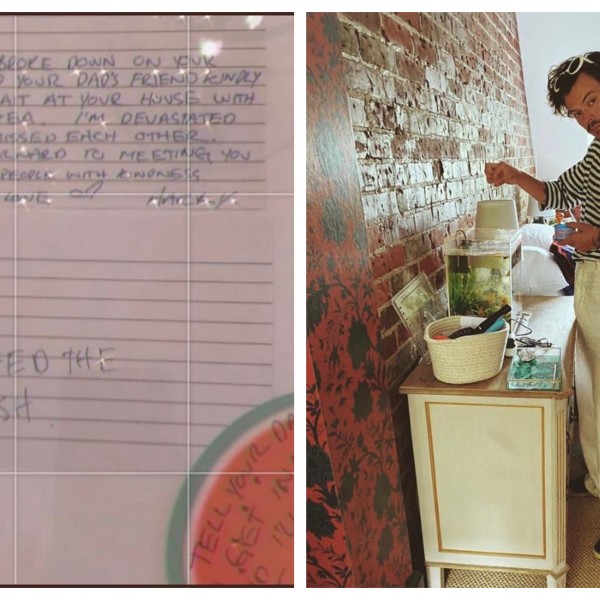 BROKE DOWN ON YOUR
YOUR DAD'S FRIEND KINDLY
WAIT AT YOUR HOUSE WITH
TEA. I'M DEVASTATED
MISSED EACH OTHER.
FORWARD TO MEETING YOU
PEOPLE WITH KINDNESS
LOVE HARRY.
FEED THE
FISH
TELL YOUR DA
GET IN